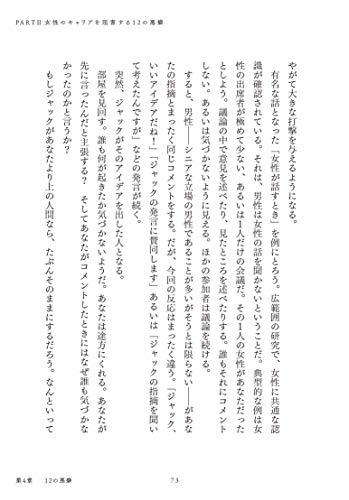 PARTⅡ 女性のキャリアを阻害する12の悪癖
やがて大きな打撃を与えるようになる。
有名な話となった「女性が話すとき」を例にとろう。広範囲の研究で、女性に共通な認
識が確認されている。それは、男性は女性の話を聞かないということだ。典型的な例は女
性の出席者が極めて少ない、あるいは1人だけの会議だ。その1人の女性があなただった
としよう。議論の中で意見を述べたり、見たところを述べたりする。誰もそれにコメント
しない。あるいは気づかないように見える。ほかの参加者は議論を続ける。
すると、男性――シニアな立場の男性であることが多いがそうとは限らない――があな
たの指摘とまったく同じコメントをする。だが、今回の反応はまったく違う。「ジャック、
いいアイデアだね!」「ジャックの発言に賛同します」あるいは「ジャックの指摘を聞い
て考えたんですが」などの発言が続く。
突然、ジャックがそのアイデアを出した人となる。
部屋を見回す。誰も何が起きたか気づかないようだ。あなたは途方にくれる。あなたが
先に言ったんだと主張する? そしてあなたがコメントしたときにはなぜ誰も気づかな
かったのかと言うか?
もしジャックがあなたより上の人間なら、たぶんそのままにするだろう。なんといって
第4章 12の悪癖
73